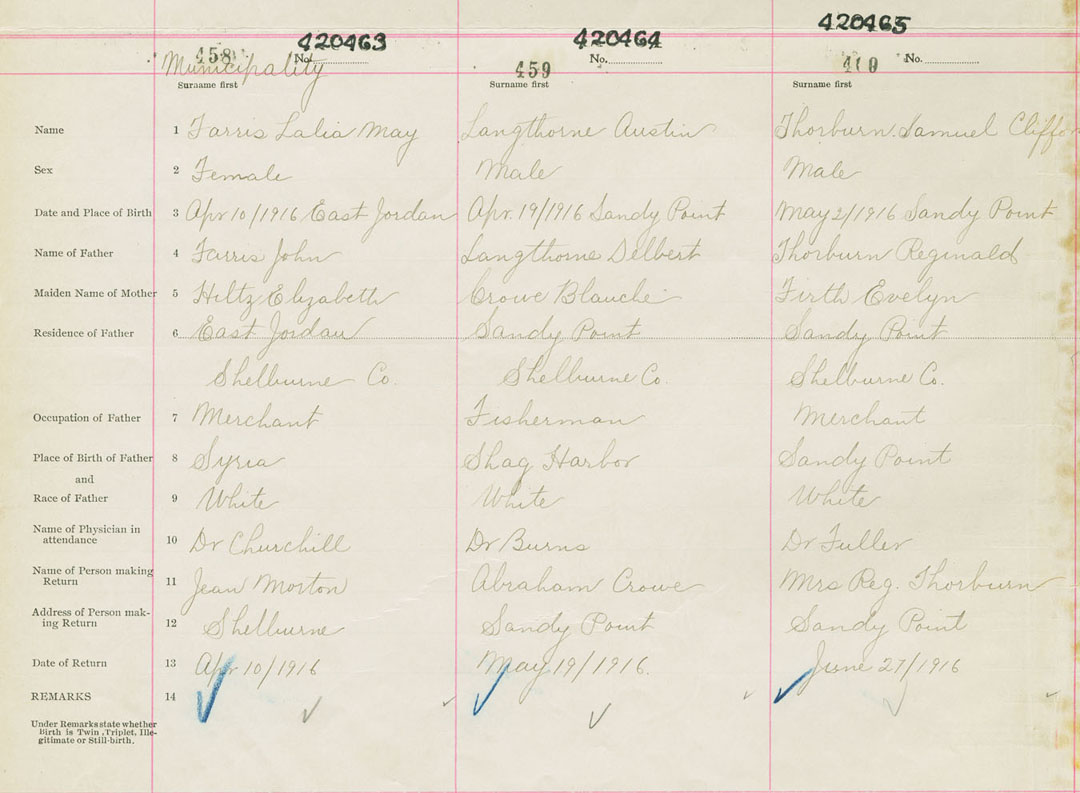 420463 420464 420465
458 No. 459 No. No.
Municipality
Surname first Surname first Surname first
Name 1 Farris Lalia May Langthorne Austin Thorburn Samuel
Sex 2 Female Male Male
Date and Place of Birth 3 Apr 10/1916 East Jordan Apr. 19/1916 Sandy Point May 2/1916 Sandy Point
Name of Father 4 Farris John Langthorne Delbert Thorburn Reginald
Maiden Name of Mother 5 Hiltz Elizabeth Crowe Blanche Firth Evelyn
Residence of Father 6 East Jordan Sandy Point Sandy Point
Shelburne Co. Shelburne Co. Shelburne Co.
Occupation of Father 7 Merchant Fisherman Merchant
Place of Birth of Father 8 Syria Shag Harbor Sandy Point
and
Race of Father 9 White White White
Name of Physician in
attendance 10 Dr Churchill Dr Burns Dr Fuller
Name of Person making
Return 11 Jean Morton Abraham Crowe Mrs Reg. Thorburn
Address of Person mak-
ing Return 12 Shelburne Sandy Point Sandy Point
Date of Return 13 Apr 10/1916 May 19/1916. June 27/1916
REMARKS 14
Under Remarks state whether
Birth is Twin, Triplet, Ille-
gitimate or Still-birth.